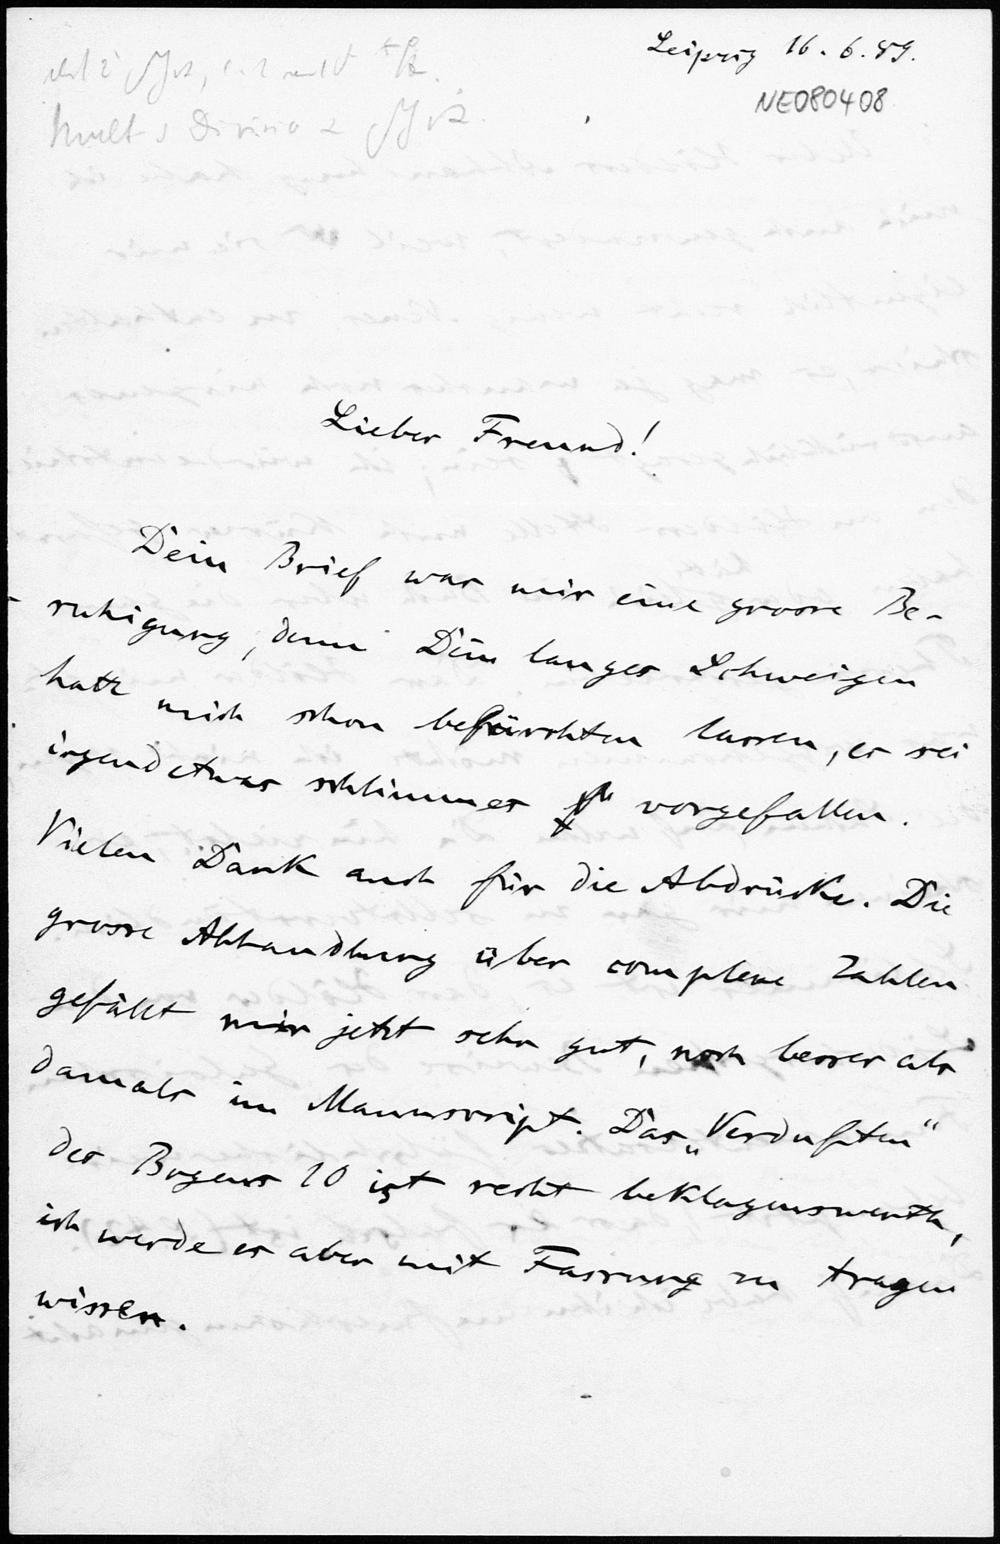 Leipzig 16.6.89.
NE080408
Mult
Lieber Freund!
Dein Brief war mir eine grosse Be-
ruhigung, denn Dein langes Schweigen
hatte mich schon befürchten lassen, es sei
irgend etwas schlimmes vorgefallen.
Vielen Dank auch für die Abdrücke. Die
grosse Abhandlung über complexe Zahlen
gefällt mir jetzt sehr gut, noch besser als
damals im Manuscript. Das „Verduften“
des Bogens 10 ist recht beklagenswerth,
ich werde es aber mit Fassung zu tragen
wissen.